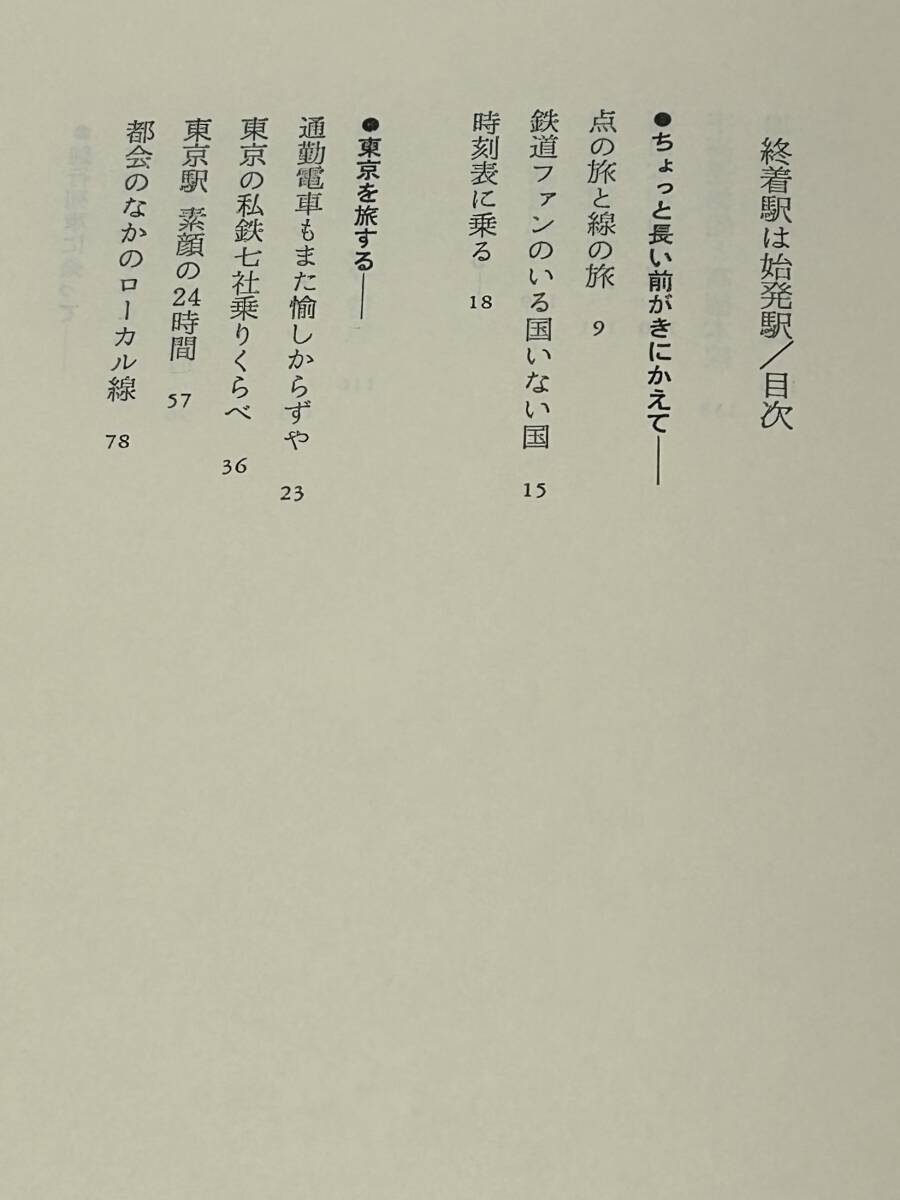 終着駅は始発駅／目次
●ちょっと長い前がきにかえて――
点の旅と線の旅 9
鉄道ファンのいる国いない国 15
時刻表に乗る 18
●東京を旅する――
通勤電車もまた愉しからずや 23
東京の私鉄七社乗りくらべ 36
東京駅 素顔の24時間 57
都会のなかのローカル線 78